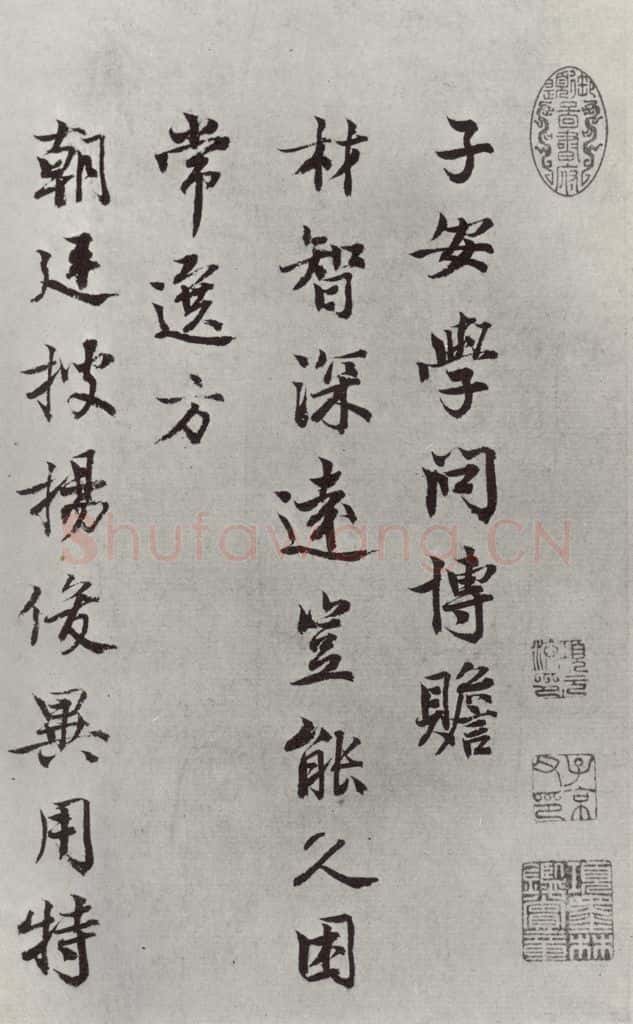 子安學問博贍
材智深遠豈能久困
常選方
朝廷搜揚俊異用特
Shufawang.CN